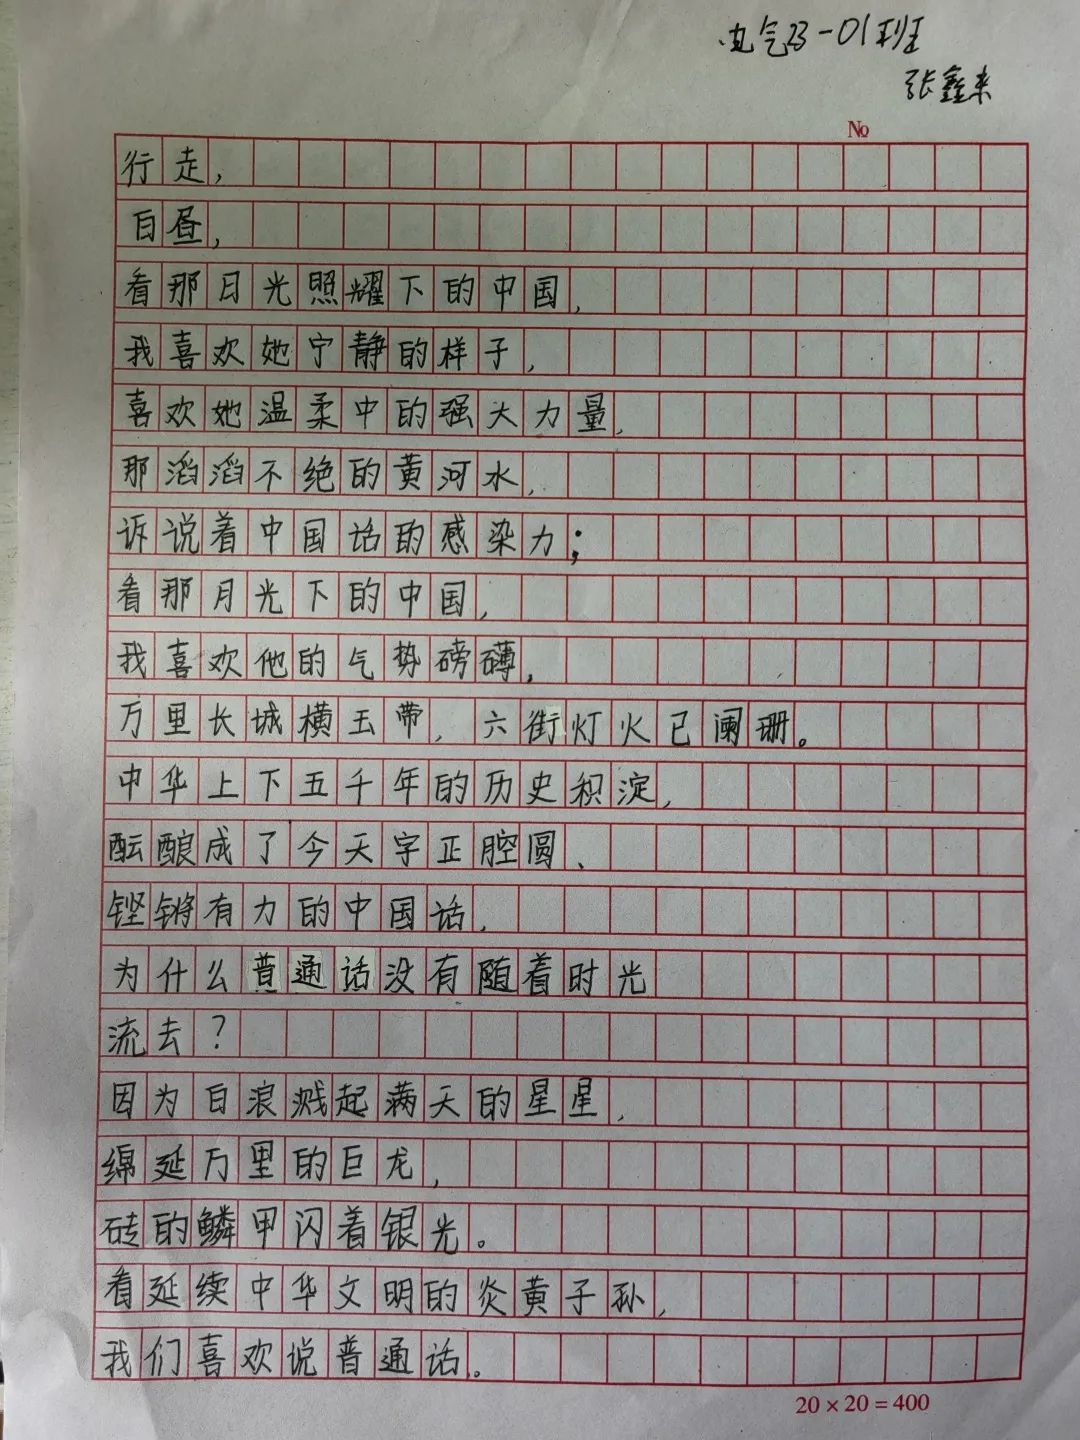 电气23-01班
张鑫来
№
行走，
白昼，
看那日光照耀下的中国，
我喜欢她宁静的样子，
喜欢她温柔中的强大力量，
那滔滔不绝的黄河水，
诉说着中国话的感染力；
看那月光下的中国，
我喜欢他的气势磅礴，
万里长城横玉带，六街灯火已阑珊。
中华上下五千年的历史积淀，
酝酿成了今天字正腔圆、
铿锵有力的中国话，
为什么普通话没有随着时光
流去？
因为白浪溅起满天的星星，
绵延万里的巨龙，
砖的鳞甲闪着银光。
看延续中华文明的炎黄子孙，
我们喜欢说普通话。
20×20=400